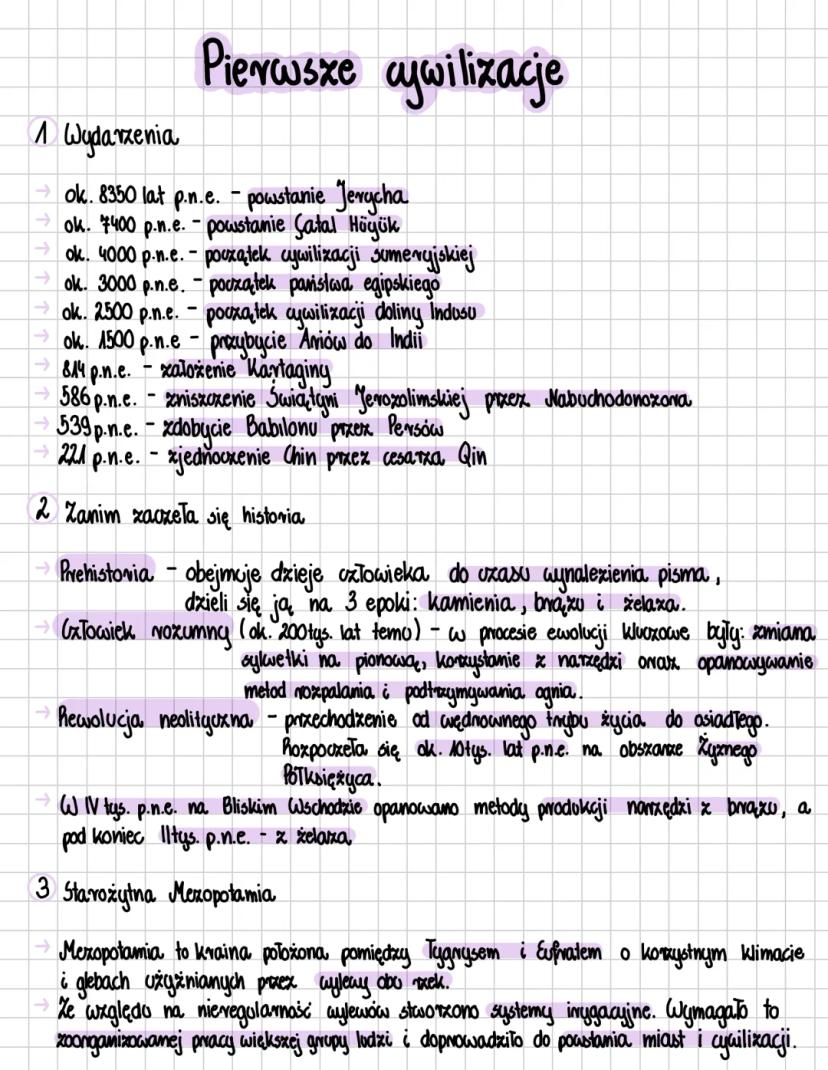 Pierwsze cywilizacje
1 Wydarzenia
→ ok. 8350 lat p.n.e. - powstanie Jerycha
→ ok. 7400 p.n.e. - powstanie Çatal Höyük
→ ok. 4000 p.n.e. - początek cywilizacji sumeryjskiej
→ ok. 3000 p.n.e. - początek państwa egipskiego
→ ok. 2500 p.n.e. - początek cywilizacji doliny Indusu
→ ok. 1500 p.n.e - przybycie Ariów do Indii
→ 814 p.n.e. - założenie Kartaginy
→ 586 p.n.e. - zniszczenie Świątyni Jerozolimskiej przez Nabuchodonozora
→ 539 p.n.e. - zdobycie Babilonu przez Persów
→ 221 p.n.e. - zjednoczenie Chin przez cesarza Qin
2 Zanim zaczęła się historia
→ Prehistoria - obejmuje dzieje człowieka do czasu wynalezienia pisma,
dzieli się ją na 3 epoki: kamienia, brązu i żelaza.
→ Człowiek rozumny (ok. 200tys. lat temu) - w procesie ewolucji kluczowe były: zmiana
sylwetki na pionową, korzystanie z narzędzi oraz opanowywanie
metod rozpalania i podtrzymywania ognia.
→ Rewolucja neolityczna - przechodzenie od wędrownego trybu życia do osiadłego.
Rozpoczęła się ok. 10tys. lat p.n.e. na obszarze Żyznego
Półksiężyca.
→ W IV tys. p.n.e. na Bliskim Wschodzie opanowano metody produkcji narzędzi z brązu, a
pod koniec II tys. p.n.e. - z żelaza
3 Starożytna Mezopotamia
→ Mezopotamia to kraina położona pomiędzy Tygrysem i Eufratem o korzystnym klimacie
i glebach użyźnianych przez wylewy obu rzek.
→ Ze względu na nieregularność wylewów stworzono systemy irygacyjne. Wymagało to
zoorganizowanej pracy większej grupy ludzi i doprowadziło do powstania miast i cywilizacji.